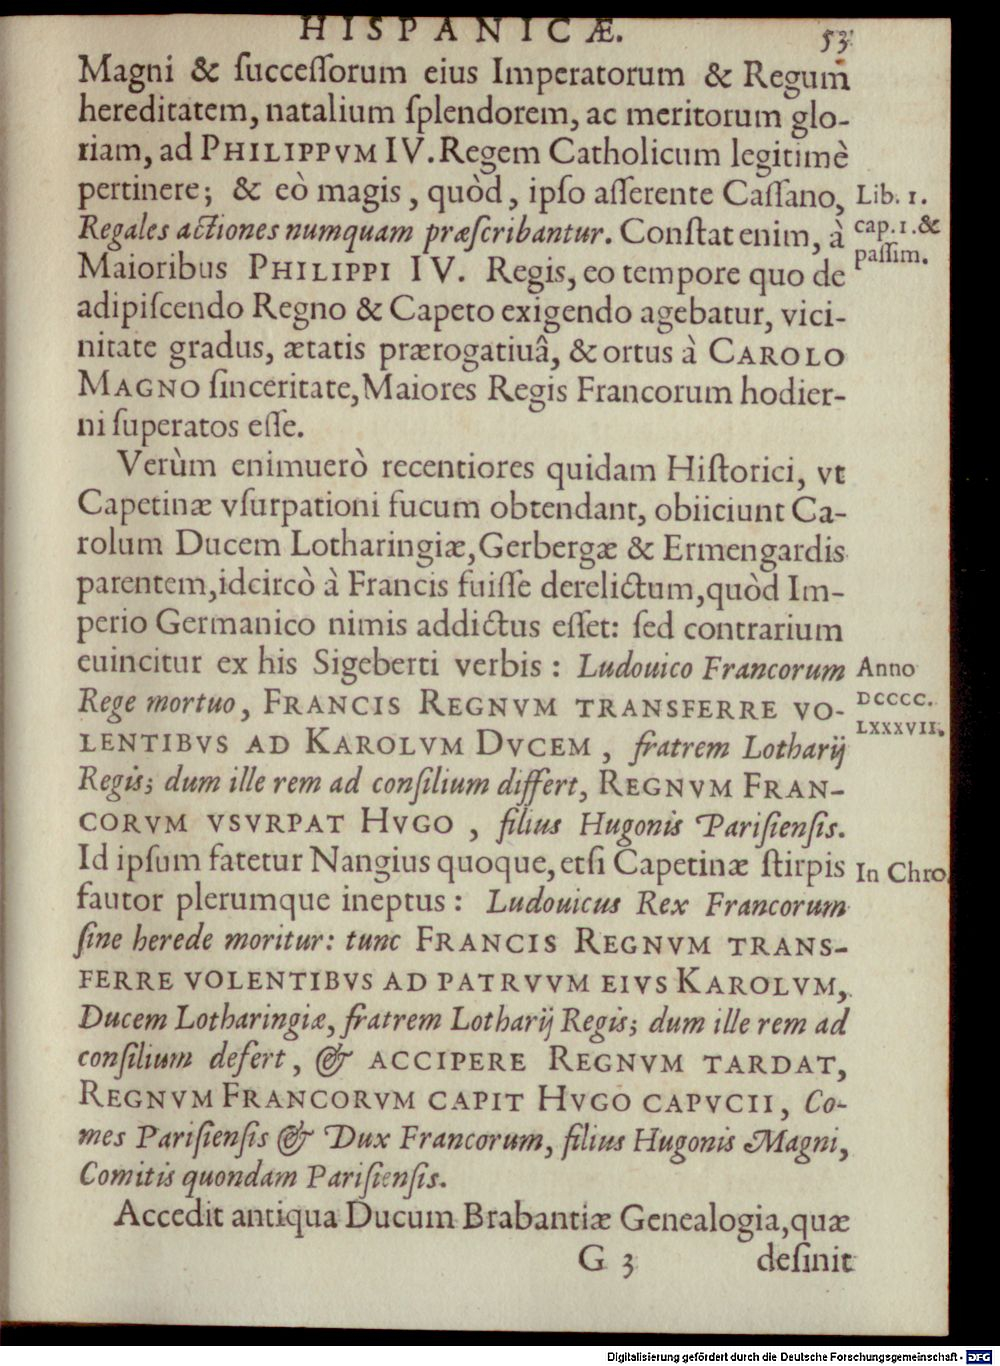 HISPANICÆ. 53
Magni & ſucceſſorum eius Imperatorum & Regum
hereditatem, natalium ſplendorem, ac meritorum glo-
riam, ad PHILIPPVM IV. Regem Catholicum legitimè
pertinere; & eò magis, quòd, ipſo aſſerente Caſſano,
Lib. 1.
Regales actiones numquam præſcribantur. Conſtat enim, à
cap. 1. &
Maioribus PHILIPPI IV. Regis, eo tempore quo de
paſſim.
adipiſcendo Regno & Capeto exigendo agebatur, vici-
nitate gradus, ætatis prærogatiuâ, & ortus à CAROLO
MAGNO ſinceritate, Maiores Regis Francorum hodier-
ni ſuperatos eſſe.
Verùm enimuerò recentiores quidam Hiſtorici, vt
Capetinæ vſurpationi fucum obtendant, obiiciunt Ca-
rolum Ducem Lotharingiæ, Gerbergæ & Ermengardis
parentem, idcircò à Francis fuiſſe derelictum, quòd Im-
perio Germanico nimis addictus eſſet: ſed contrarium
euincitur ex his Sigeberti verbis: Ludouico Francorum
Anno
Rege mortuo, FRANCIS REGNVM TRANSFERRE VO-
DCCCC.
LENTIBVS AD KAROLVM DVCEM, fratrem Lotharij
LXXXVII.
Regis; dum ille rem ad conſilium differt, REGNVM FRAN-
CORVM VSVRPAT HVGO, filius Hugonis Pariſienſis.
Id ipſum fatetur Nangius quoque, etſi Capetinæ ſtirpis
In Chro.
fautor plerumque ineptus: Ludouicus Rex Francorum
ſine herede moritur: tunc FRANCIS REGNVM TRANS-
FERRE VOLENTIBVS AD PATRVVM EIVS KAROLVM,
Ducem Lotharingiæ, fratrem Lotharij Regis; dum ille rem ad
conſilium defert, & ACCIPERE REGNVM TARDAT,
REGNVM FRANCORVM CAPIT HVGO CAPVCII, Co-
mes Pariſienſis & Dux Francorum, filius Hugonis Magni,
Comitis quondam Pariſienſis.
Accedit antiqua Ducum Brabantiæ Genealogia, quæ
G 3 deſinit
Digitalisierung gefördert durch die Deutsche Forschungsgemeinschaft - DFG